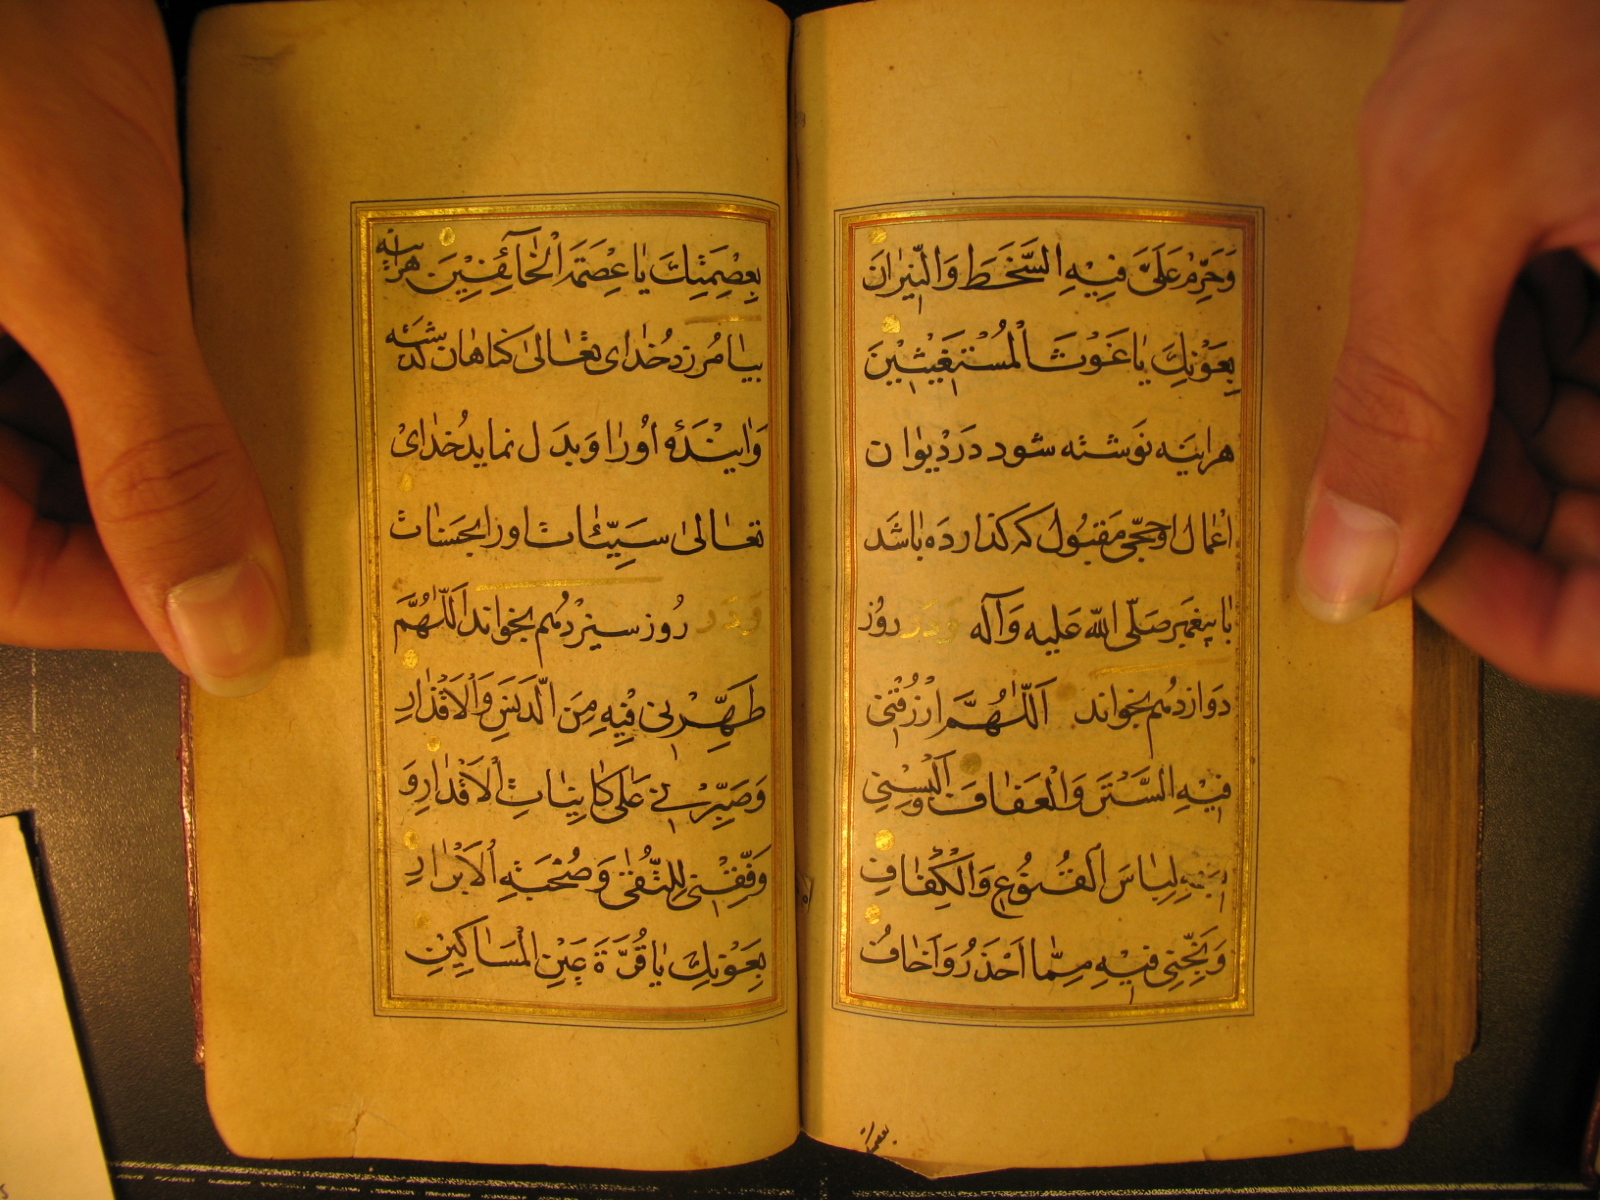 وَحَرِّمْ عَلَیَّ فِیهِ السَّخَطَ وَالنِّیرانَ
بِعَوْنِكَ یا غَوْثَ الْمُسْتَغیثینَ
هراینه نوشته شود در دیوان
اعمال او حجّی مقبول که کذارده باشد
با پیغمبر صلّی الله علیه وآله ودر روز
دوازدهم بخواند اَللّٰهُمَّ ارْزُقْنی
فِیهِ السَّتْرَ وَالْعَفافَ وَاَلْبِسْنی
فِیهِ لِباسَ الْقُنُوعِ وَالْكَفافِ
وَنَجِّنی فِیهِ مِمّا اَحْذَرُ وَاَخافُ
بعصمتك
بِعِصْمَتِكَ یا عِصْمَةَ الْخآئِفینَ هراینه
بیامرزد خدای تعالی کناهان کذشته
واینده اورا وبدل نماید خدای
تعالی سیّئات اورا بحسنات
ودر روز سیزدهم بخواند اَللّٰهُمَّ
طَهِّرْنی فِیهِ مِنَ الدَّنَسِ وَالاَقْذارِ
وَصَبِّرْنی عَلی كائِناتِ الاَقْدارِ وَ
وَفِّقْنی لِلتُّقی وَصُحْبَةِ الاَبْرارِ
بِعَوْنِكَ یا قُرَّةَ عَیْنِ الْمَساكینِ